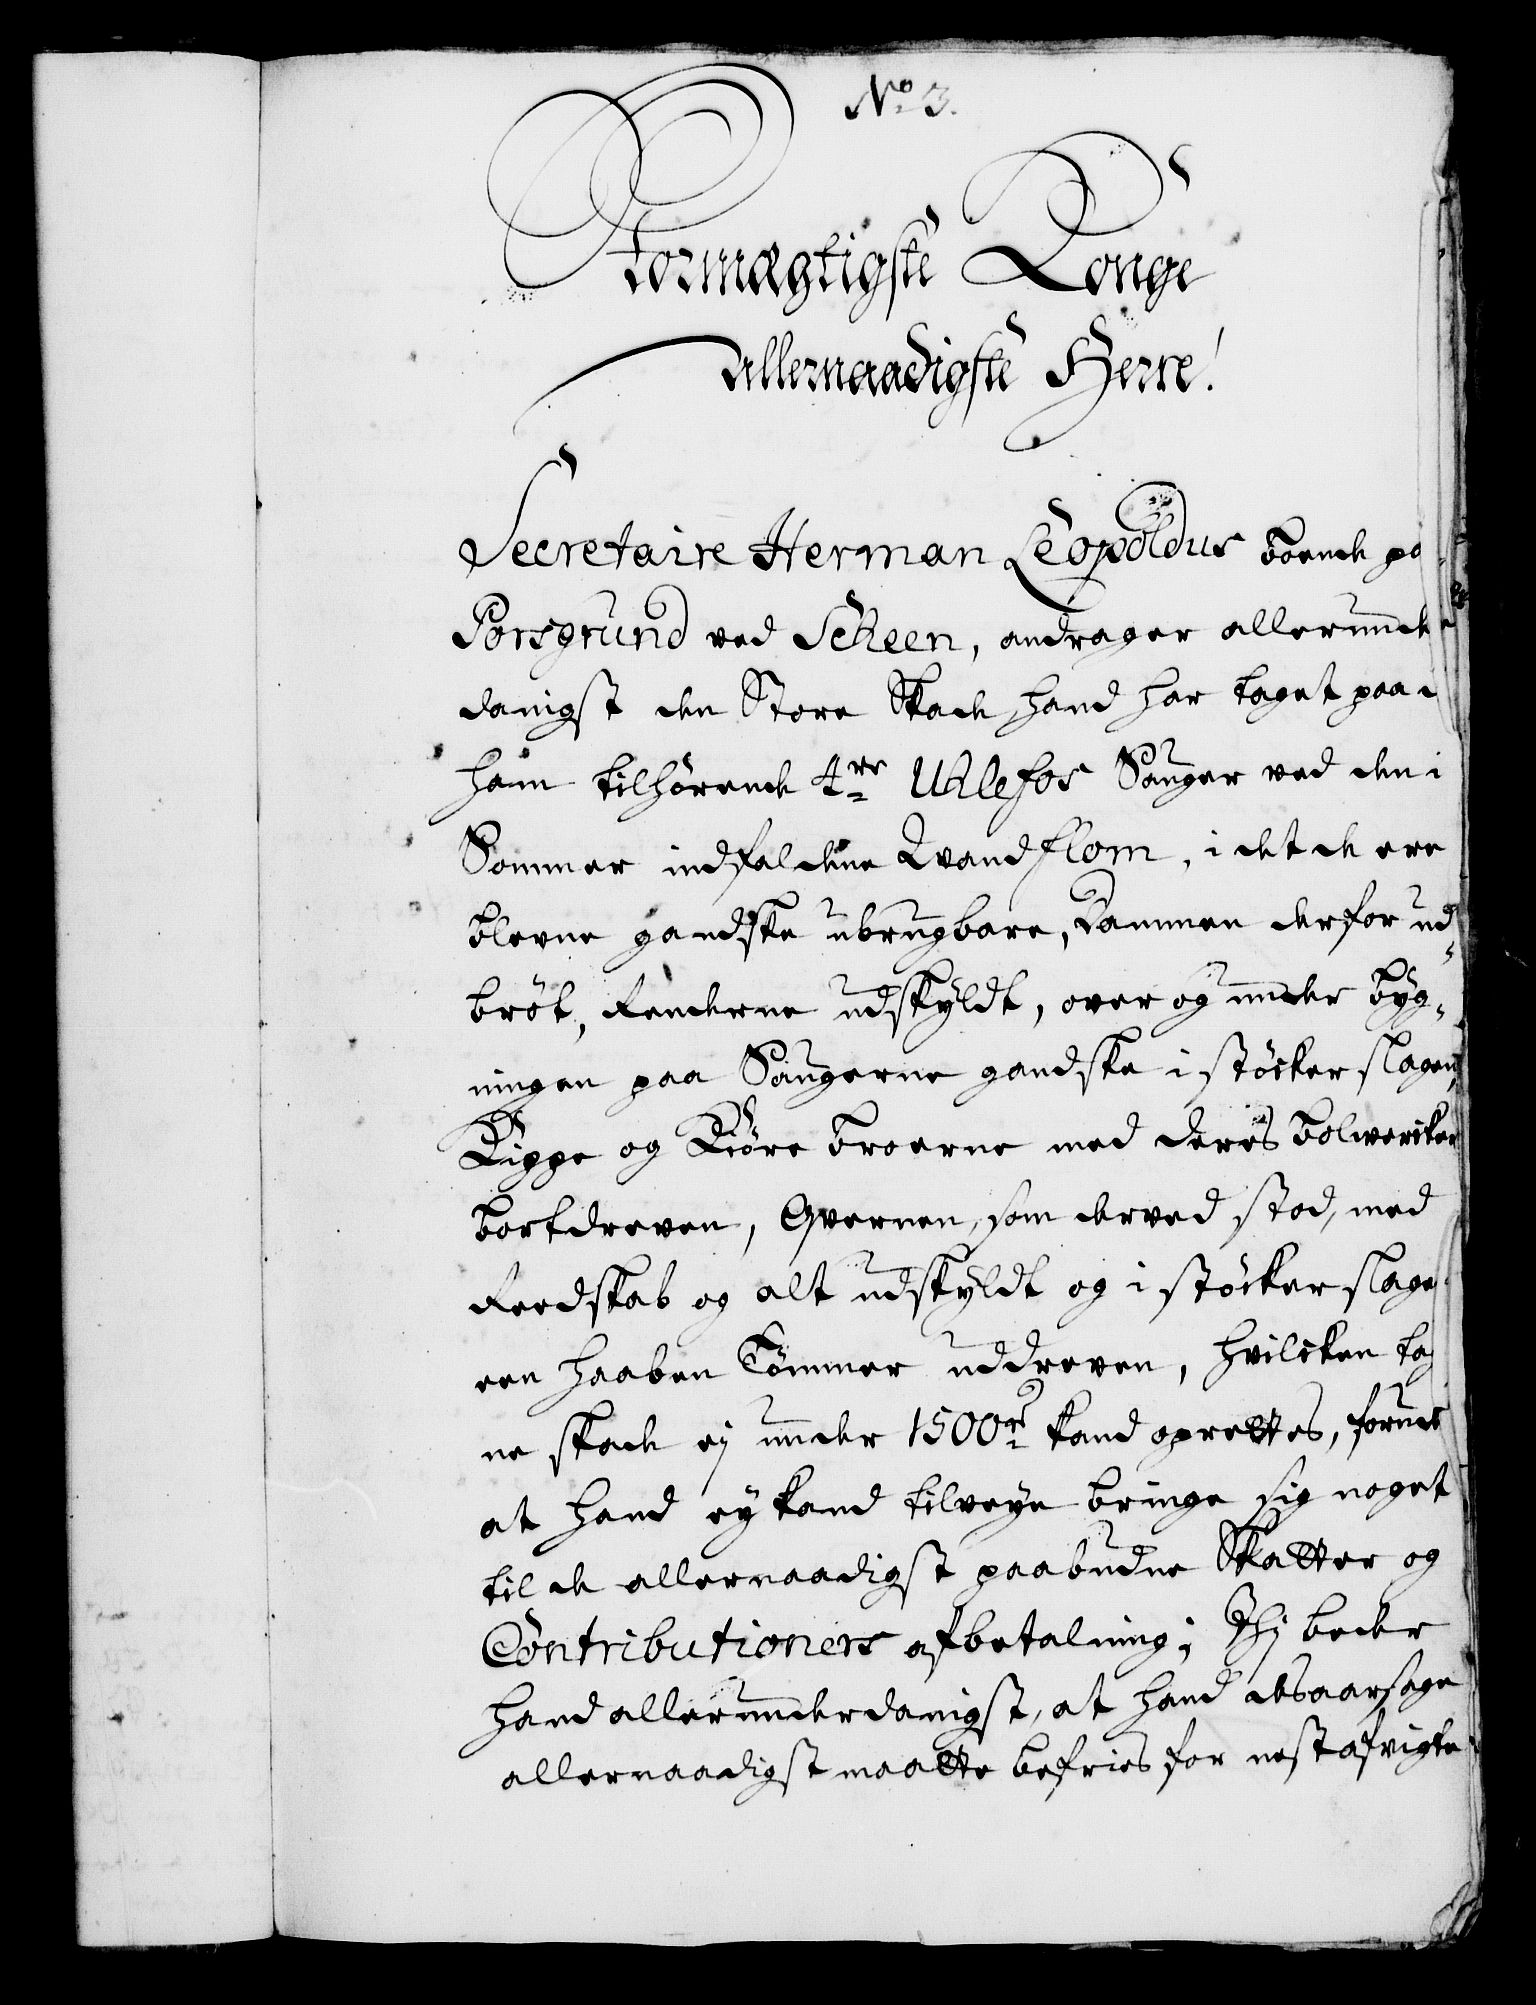 No 3.
Stormægtigste Konge
Allernaadigste Herre!
Secretaire Herman Leopoldus boende pa
Porsgrund ved Scheen, andrager allerunde
danigst den Store Skade hand har taget paa
ham tilhørende 4re Uhlefos Sauger ved den i
Sommer indfaldene Vandflom, i det de ere
blevne gandske ubrugbare, Dammen derfor ud-
brøt, Renderne udskÿldt, over og under bÿg-
ningen paa Saugerne gandske i støcker slagen,
Ligge og Kiøre broerne med deres bolwercker
bortdreven, Qvernen, som derved stod, med
Reedskab og alt udskÿldt og i støcker slage
een haaben Tømmer uddreven, hvilcken tag
ne skade ej under 1500 rd kand oprettes, foruden
at hand ey kand tilveye bringe sig noget
til de allernaadigst paabudne Skatter og
Contributioners afbetaling; Thj beder
hand allerunderdanigst, at hand desaarsage
allernaadigst maatte befries for nest afvigte